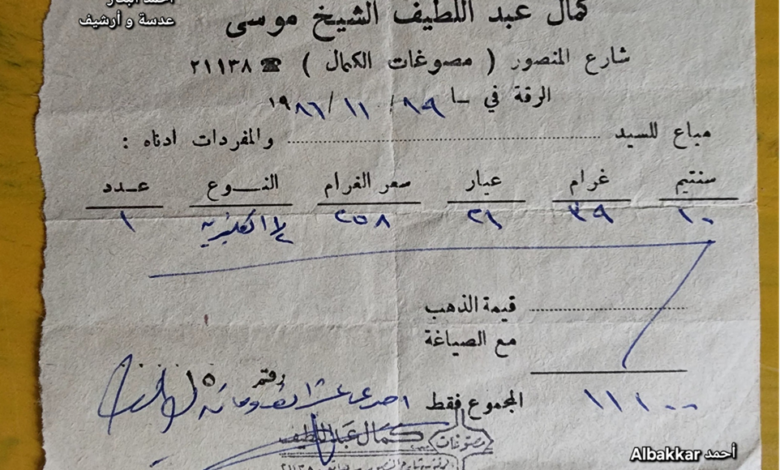 أحمد البكار
عدسة و أرشيف
كمال عبد اللطيف الشيخ موسى
شارع المنصور ( مصوغات الكمال ) ☎ ٢١١٣٨
الرقة في ١٩/ ١١/ ١٩٨٦
مباع للسيد ........................ والمفردات ادناه :
سنتيم غرام عيار سعر الغرام النـــوع عـــدد
١٠ ٣٩ ٢١ ٢٥٨ انكليزية ١
قيمة الذهب ........................
مع الصياغة
المجموع فقط ١١١٠٠
احدى عشر الف ومائة
مصوغات كمال عبد اللطيف
أحمد Albakkar